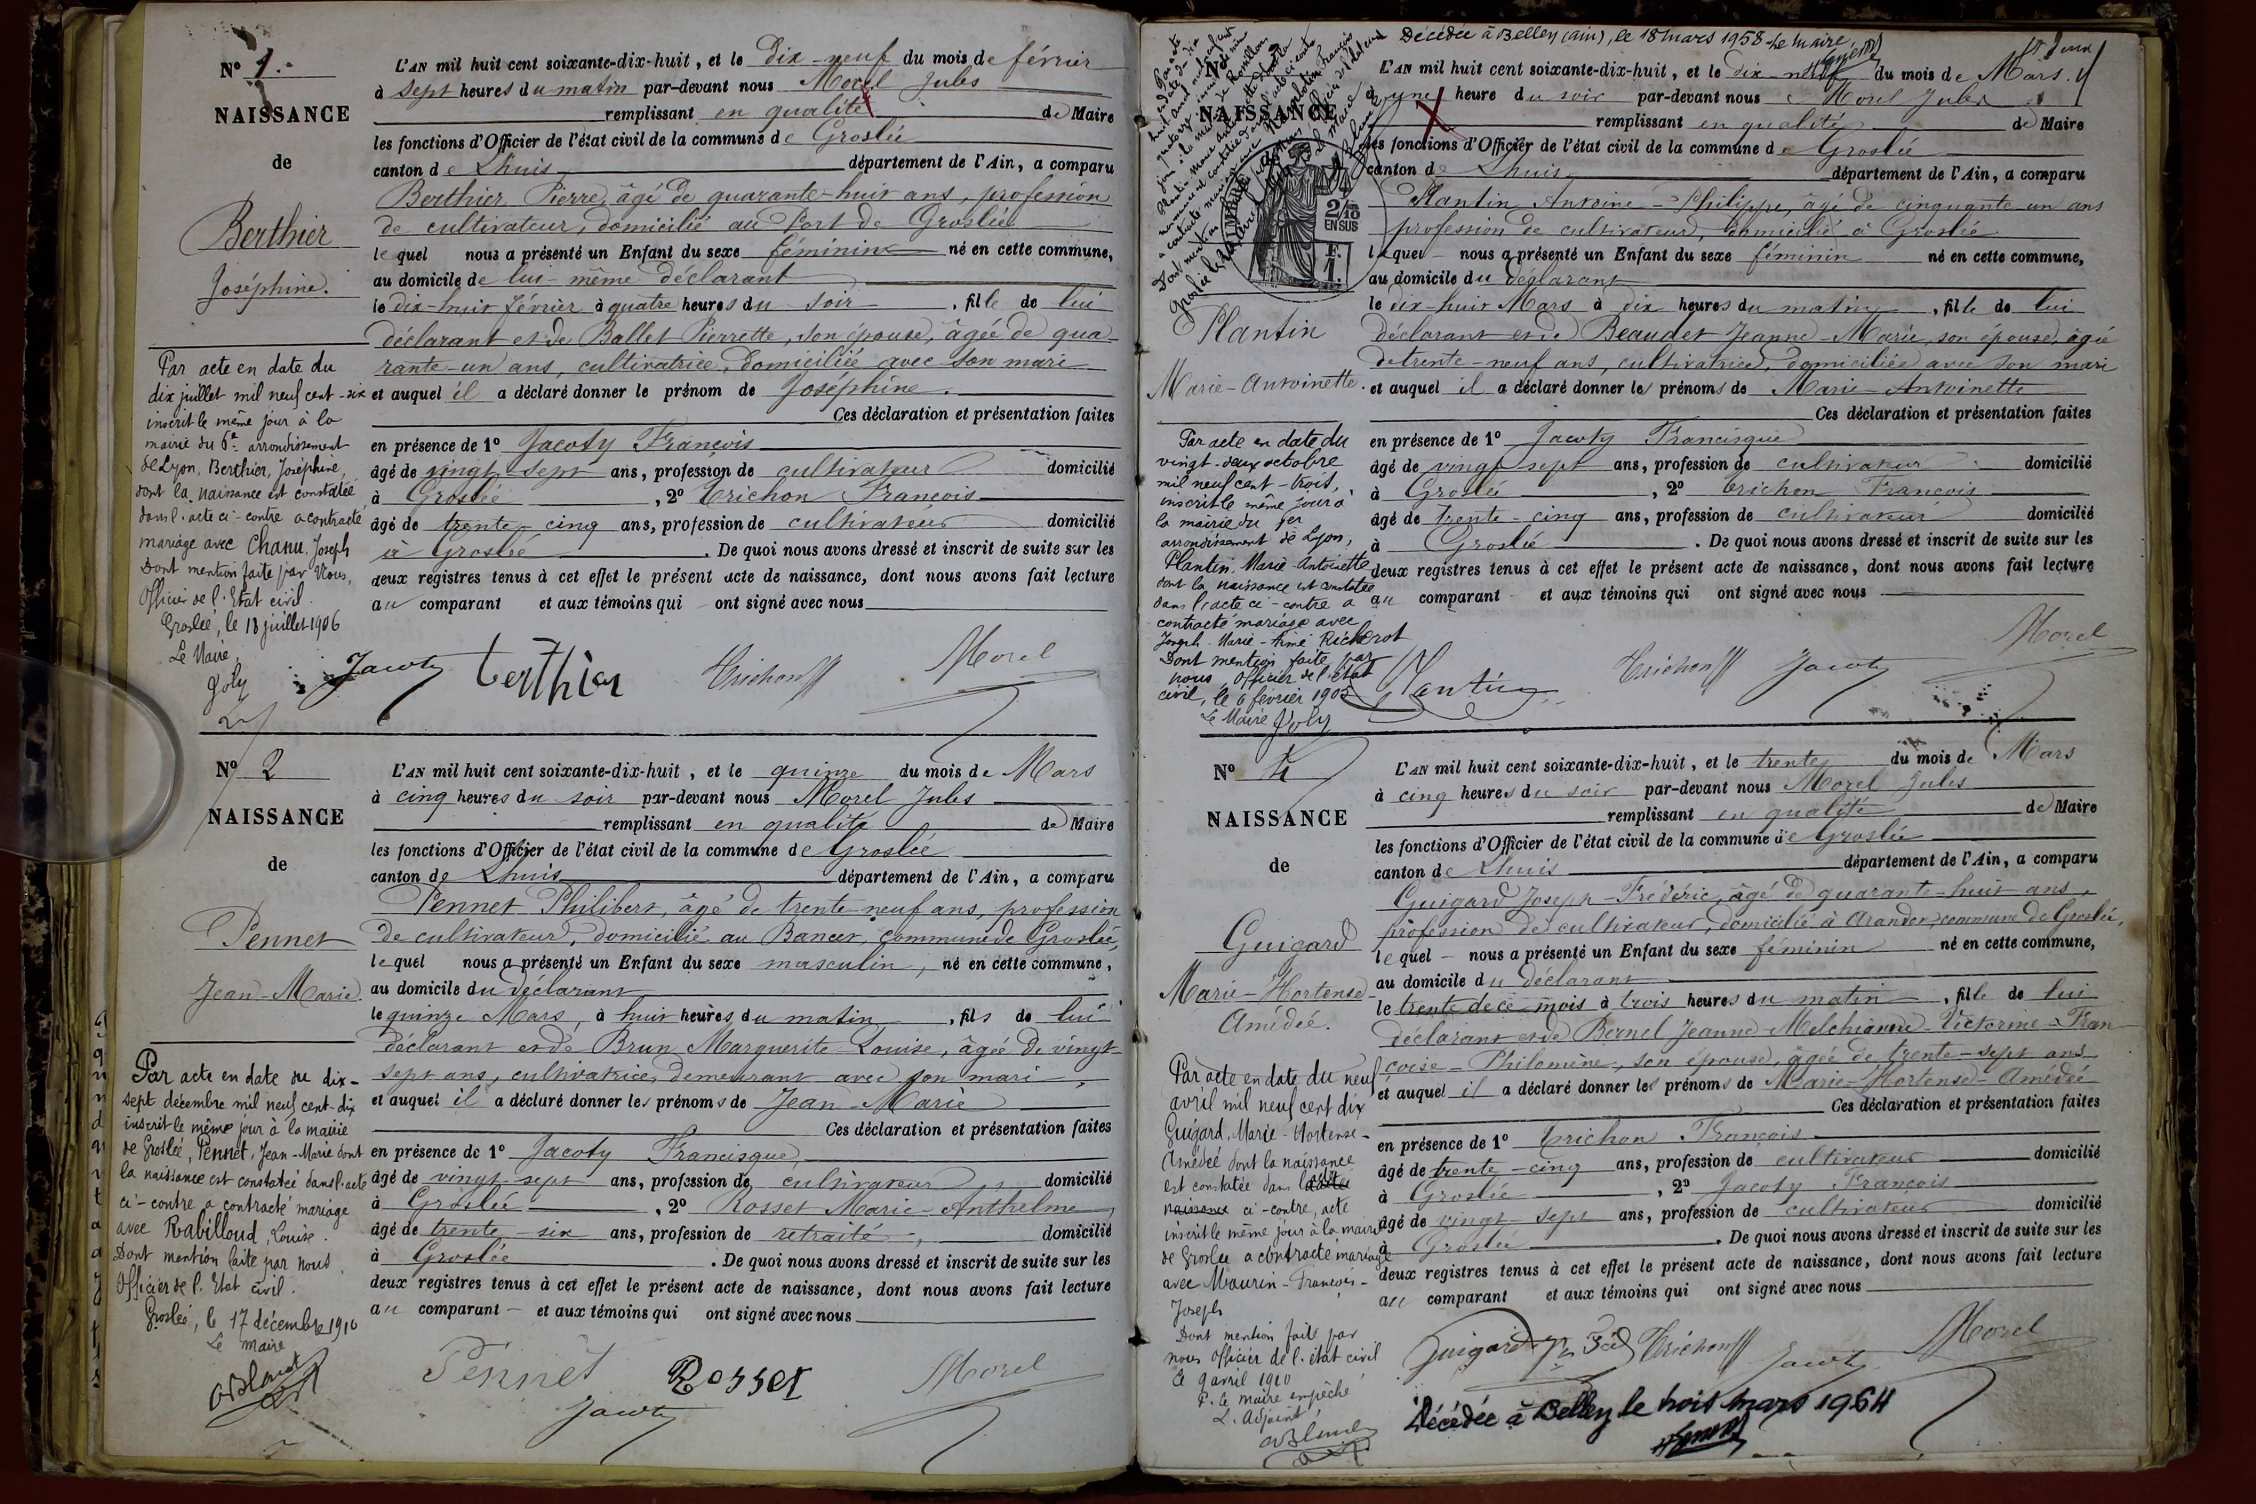 Nº 1.
NAISSANCE
de
Berthier
Joséphine.
Par acte en date du
dix juillet mil neuf cent-six
inscrit le même jour à la
mairie du 6e arrondissement
de Lyon, Berthier, Joséphine,
dont la naissance est constatée
dans l'acte ci-contre a contracté
mariage avec Chanu, Joseph
Dont mention faite par Nous,
Officier de l'Etat civil.
Groslée, le 18 juillet 1906
Le Maire,
Joly
L'AN mil huit cent soixante-dix-huit, et le Dix-neuf du mois de février
à sept heures du matin par-devant nous Morel Jules
remplissant en qualité de Maire
les fonctions d'Officier de l'état civil de la commune de Groslée
canton de Lhuis département de l'Ain, a comparu
Berthier Pierre, âgé de quarante-huit ans, profession
de cultivateur, domicilié au Port de Groslée
lequel nous a présenté un Enfant du sexe féminine né en cette commune,
au domicile de lui-même déclarant
le dix-huit février à quatre heures du soir, fille de lui
déclarant et de Ballet Pierrette, son épouse, âgée de qua-
rante-un ans, cultivatrice, domiciliée avec son mari
et auquel il a déclaré donner le prénom de Joséphine.
Ces déclaration et présentation faites
en présence de 1º Jacoty François
âgé de vingt-sept ans, profession de cultivateur domicilié
à Groslée, 2º Trichon François
âgé de trente-cinq ans, profession de cultivateur domicilié
à Groslée. De quoi nous avons dressé et inscrit de suite sur les
deux registres tenus à cet effet le présent acte de naissance, dont nous avons fait lecture
au comparant et aux témoins qui ont signé avec nous
Jacoty berthier Trichon Morel
Nº 2
NAISSANCE
de
Pennet
Jean-Marie.
Par acte en date du dix-
sept décembre mil neuf cent-dix
inscrit le même jour à la mairie
de Groslée, Pennet, Jean-Marie dont
la naissance est constatée dans l'acte
ci-contre a contracté mariage
avec Rabilloud, Louise.
Dont mention faite par nous
Officier de l'Etat civil.
Groslée, le 17 décembre 1910
Le maire
L'AN mil huit cent soixante-dix-huit, et le quinze du mois de Mars
à cinq heures du soir par-devant nous Morel Jules
remplissant en qualité de Maire
les fonctions d'Officier de l'état civil de la commune de Groslée
canton de Lhuis département de l'Ain, a comparu
Pennet Philibert, âgé de trente-neuf ans, profession
de cultivateur, domicilié au Bancet, commune de Groslée,
lequel nous a présenté un Enfant du sexe masculin, né en cette commune,
au domicile du déclarant
le quinze Mars, à huit heures du matin, fils de lui
déclarant et de Brun Marguerite Louise, âgée de vingt-
sept ans, cultivatrice, demeurant avec son mari
et auquel il a déclaré donner les prénoms de Jean-Marie
Ces déclaration et présentation faites
en présence de 1º Jacoty Francisque,
âgé de vingt-sept ans, profession de cultivateur domicilié
à Groslée, 2º Rosset Marie-Anthelme,
âgé de trente-six ans, profession de retraité, domicilié
à Groslée. De quoi nous avons dressé et inscrit de suite sur les
deux registres tenus à cet effet le présent acte de naissance, dont nous avons fait lecture
au comparant et aux témoins qui ont signé avec nous
Pennet Rosset Morel
Jacoty
Décédée à Belley (ain), le 18 mars 1958 - Le maire,
NAISSANCE
TIMBRE
2/10
EN SUS
F.
1.
Plantin
Marie-Antoinette.
Par acte en date du
vingt-deux octobre
mil neuf cent-trois,
inscrit le même jour à
la mairie du 1er
arrondissement de Lyon,
Plantin, Marie-Antoinette
dont la naissance est constatée
dans l'acte ci-contre a
contracté mariage avec
Joseph-Marie-Aimé Richerot
Dont mention faite par
nous, Officier de l'état
civil, le 6 février 1905
Le Maire Joly
L'AN mil huit cent soixante-dix-huit, et le dix-neuf du mois de Mars.
à une heure du soir par-devant nous Morel Jules
remplissant en qualité de Maire
les fonctions d'Officier de l'état civil de la commune de Groslée
canton de Lhuis département de l'Ain, a comparu
Plantin Antoine-Philippe, âgé de cinquante-un ans
profession de cultivateur, domicilié à Groslée
lequel nous a présenté un Enfant du sexe féminin né en cette commune,
au domicile du déclarant
le dix-huit Mars à dix heures du matin, fille de lui
déclarant et de Beaudet Jeanne-Marie, son épouse, âgée
de trente-neuf ans, cultivatrice, domiciliée avec son mari
et auquel il a déclaré donner les prénoms de Marie-Antoinette
Ces déclaration et présentation faites
en présence de 1º Jacoty Francisque
âgé de vingt-sept ans, profession de cultivateur domicilié
à Groslée, 2º Trichon François
âgé de trente-cinq ans, profession de cultivateur domicilié
à Groslée. De quoi nous avons dressé et inscrit de suite sur les
deux registres tenus à cet effet le présent acte de naissance, dont nous avons fait lecture
au comparant et aux témoins qui ont signé avec nous
Plantin Trichon Jacoty Morel
Nº 4
NAISSANCE
de
Guigard
Marie-Hortense-
Amédée.
Par acte en date du neuf
avril mil neuf cent dix
Guigard, Marie-Hortense-
Amédée dont la naissance
est constatée dans l'acte
naissance ci-contre, acte
inscrit le même jour à la mairie
de Groslée a contracté mariage
avec Maurin-François-
Joseph
Dont mention faite par
nous Officier de l'état civil
le 9 avril 1910
P. le maire empêché
L. Adjoint
L'AN mil huit cent soixante-dix-huit, et le trente du mois de Mars
à cinq heures du soir par-devant nous Morel Jules
remplissant en qualité de Maire
les fonctions d'Officier de l'état civil de la commune de Groslée
canton de Lhuis département de l'Ain, a comparu
Guigard Joseph-Frédéric, âgé de quarante-huit ans,
profession de cultivateur, domicilié à Arandon, commune de Groslée,
lequel nous a présenté un Enfant du sexe féminin né en cette commune,
au domicile du déclarant
le trente de ce mois à trois heures du matin, fille de lui
déclarant et de Bernel Jeanne Melchionne-Victorine-Fran-
çoise-Philomène, son épouse, âgée de trente-sept ans
et auquel il a déclaré donner les prénoms de Marie-Hortense-Amédée
Ces déclaration et présentation faites
en présence de 1º Trichon François
âgé de trente-cinq ans, profession de cultivateur domicilié
à Groslée, 2º Jacoty François
âgé de vingt sept ans, profession de cultivateur domicilié
à Groslée. De quoi nous avons dressé et inscrit de suite sur les
deux registres tenus à cet effet le présent acte de naissance, dont nous avons fait lecture
au comparant et aux témoins qui ont signé avec nous
Guigard Trichon Jacoty Morel
Décédée à Belley le trois mars 1964